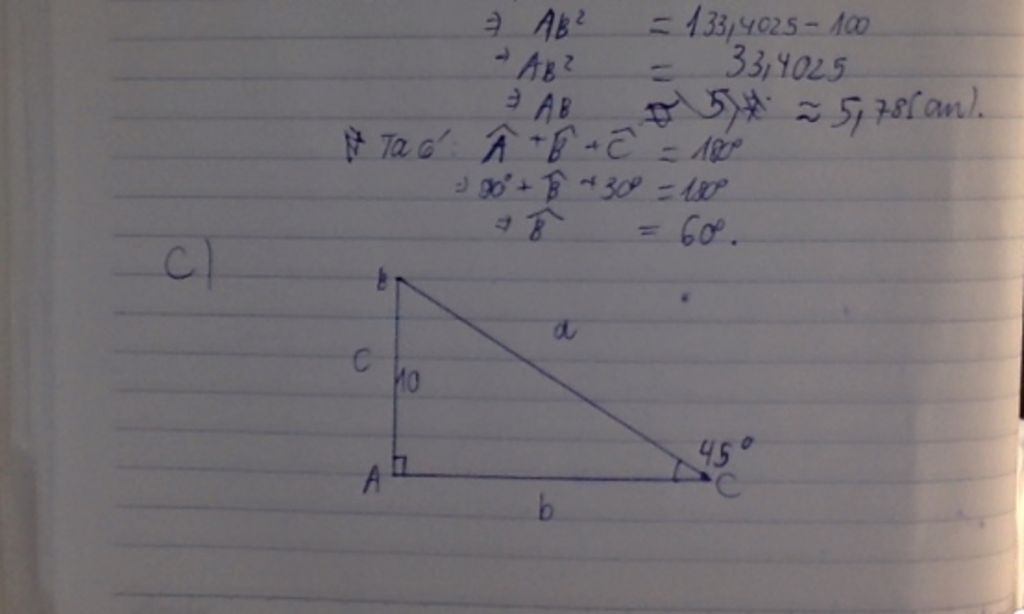 ⇒ AB² = 133,4025 - 100
⇒ AB² = 33,4025
⇒ AB ≈ 5,78(cm).
Ta có: Â + B̂ + Ĉ = 180°
⇒ 90° + B̂ + 30° = 180°
⇒ B̂ = 60°.
C)
B
a
C
10
45°
A
C
b